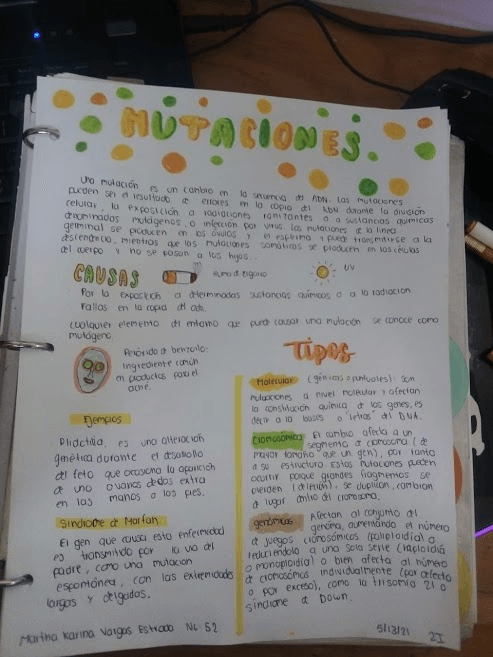 MUTACIONES.
Una mutación es un cambio en la secuencia del ADN. Las mutaciones
pueden ser el resultado de errores en la copia del ADN durante la división
celular, la exposición a radiaciones ionizantes o a sustancias químicas
denominadas mutágenos, o infección por virus. Las mutaciones de la linea
germinal se producen en los óvulos y el esperma y puede transmitirse a la
descendencia, mientras que las mutaciones somáticas se producen en las células
del cuerpo y no se pasan a los hijos.
CAUSAS
Humo de cigarro
UV
Por la exposición a determinadas sustancias químicas o a la radiación
Fallas en la copia del adn.
Cualquier elemento del entorno que puede causar una mutación se conoce como
mutágeno.
Peróxido de benzoilo:
Ingrediente común
en productos para el
acné.
Ejemplos
, es una alteración
genética durante el desarrollo
del feto que ocasiona la aparición
de uno o varios dedos extra
en las manos o los pies.
Síndrome de Marfan
El gen que causa esta enfermedad
es transmitido por la via del
padre, como una mutación
espontánea, con las extremidades
largas y delgadas.
Tipos
Molecular (génicas o puntuales): son
mutaciones a nivel molecular y afectan
la constitución química de los genes, es
decir a la bases o "letras" del DNA.
Cromosómico El cambio afecta a un
segmento de cromosoma (de
mayor tamaño que un gen), por tanto
a su estructura. Estas mutaciones pueden
ocurrir porque grandes fragmentos se
pierden (deleción), se duplican, cambian
de lugar dentro del cromosoma.
genómicas Afectan al conjunto del
genoma, aumentando el número
de juegos cromosómicos (poliploidía) o
reduciendolo a una sola serie (haploidía
o monoploidía) o bien afecta al número
de cromosomas individualmente (por defecto
o por exceso), como la trisomía 21 o
síndrome de Down.
Martha Karina Vargas Estrada NL: 52
5/13/21 2I